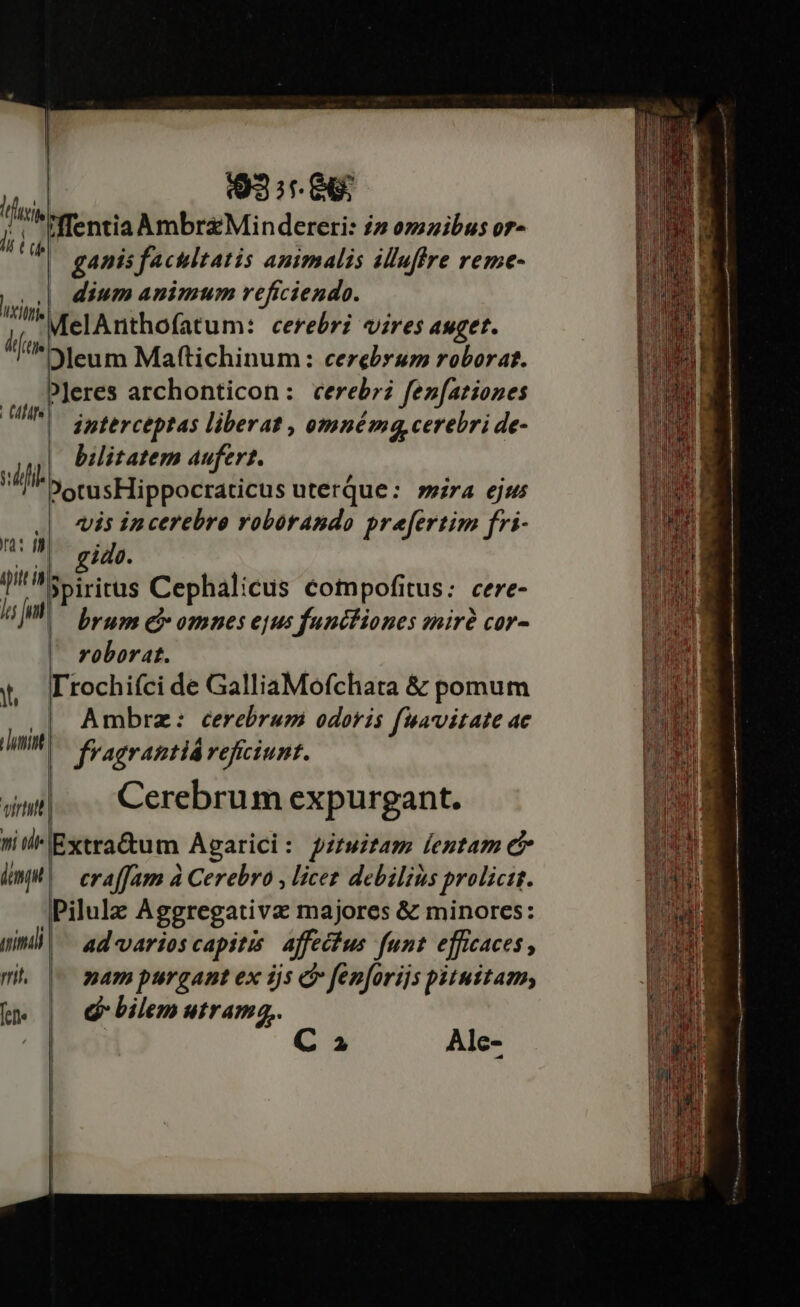 35.
Essentia Ambræ Mindereri: in omnibus or-
ganis facultatis animalis illustre reme-
dium animum reficiendo.
Mel Anthosatum: cerebri vires auget.
Oleum Mastichinum: cerebrum roborat.
Pleres archonticon: cerebri sensationes
interceptas liberat, omnémq, cerebri de-
bilitatem aufert.
Potus Hippocraticus uterque: mira ejus
vis in cerebro roborando præsertim fri-
gido.
Spiritus Cephalicus compositus: cere-
brum & omnes ejus functiones mirè cor-
roborat.
Trochisci de Gallia Moschata & pomum
Ambræ: cerebrum odoris suavitate ac
fragrantiâ reficiunt.
Cerebrum expurgant.
Extractum Agarici: pituitam lentam &
crassam à Cerebro, licet debiliùs prolicit.
Pilulæ Aggregativæ majores & minores:
ad varios capitis affectus sunt efficaces,
nam purgant ex ijs & sensorijs pituitam,
& bilem utramq,.
C 2 Ale-